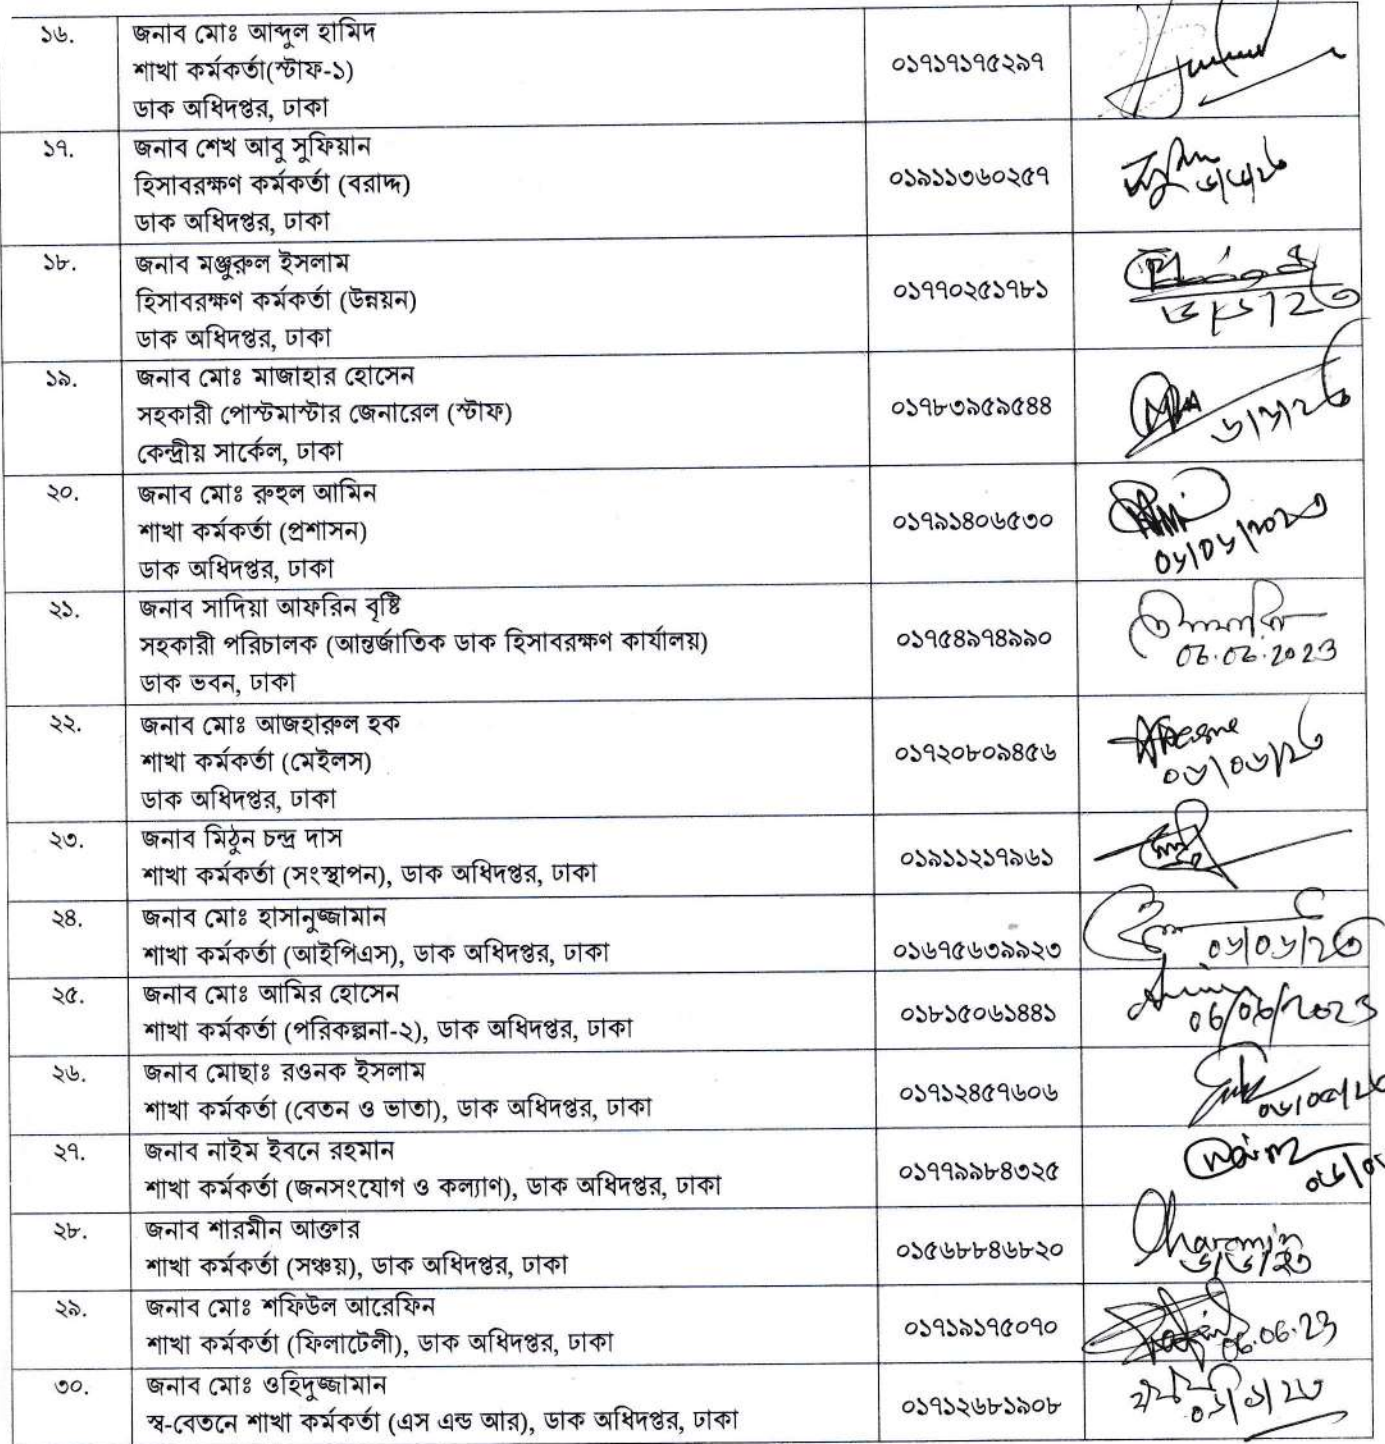 ১৬.
জনাব মোঃ আব্দুল হামিদ
শাখা কর্মকর্তা(স্টাফ-১)
ডাক অধিদপ্তর, ঢাকা
০১৭১৭১৭৫২৯৭
১৭.
জনাব শেখ আবু সুফিয়ান
হিসাবরক্ষণ কর্মকর্তা (বরাদ্দ)
ডাক অধিদপ্তর, ঢাকা
০১৯১১৩৬০২৫৭
১৮.
জনাব মঞ্জুরুল ইসলাম
হিসাবরক্ষণ কর্মকর্তা (উন্নয়ন)
ডাক অধিদপ্তর, ঢাকা
০১৭৭০২৫১৭৮১
১৯.
জনাব মোঃ মাজাহার হোসেন
সহকারী পোস্টমাস্টার জেনারেল (স্টাফ)
কেন্দ্রীয় সার্কেল, ঢাকা
০১৭৮৩৯৫৯৫৪৪
২০.
জনাব মোঃ রুহুল আমিন
শাখা কর্মকর্তা (প্রশাসন)
ডাক অধিদপ্তর, ঢাকা
০১৭৯১৪০৬৫৩০
০৬/০৬/২০২৩
২১.
জনাব সাদিয়া আফরিন বৃষ্টি
সহকারী পরিচালক (আন্তর্জাতিক ডাক হিসাবরক্ষণ কার্যালয়)
ডাক ভবন, ঢাকা
০১৭৫৪৯৭৪৯৯০
06.06.2023
২২.
জনাব মোঃ আজহারুল হক
শাখা কর্মকর্তা (মেইলস)
ডাক অধিদপ্তর, ঢাকা
০১৭২০৮০৯৪৫৬
০৬/০৬/২৩
২৩.
জনাব মিঠুন চন্দ্র দাস
শাখা কর্মকর্তা (সংস্থাপন), ডাক অধিদপ্তর, ঢাকা
০১৯১১২১৭৯৬১
২৪.
জনাব মোঃ হাসানুজ্জামান
শাখা কর্মকর্তা (আইপিএস), ডাক অধিদপ্তর, ঢাকা
০১৬৭৫৬৩৯৯২৩
০৬/০৬/২৩
২৫.
জনাব মোঃ আমির হোসেন
শাখা কর্মকর্তা (পরিকল্পনা-২), ডাক অধিদপ্তর, ঢাকা
০১৮১৫০৬১৪৪১
06/06/2023
২৬.
জনাব মোছাঃ রওনক ইসলাম
শাখা কর্মকর্তা (বেতন ও ভাতা), ডাক অধিদপ্তর, ঢাকা
০১৭১২৪৫৭৬০৬
২৭.
জনাব নাইম ইবনে রহমান
শাখা কর্মকর্তা (জনসংযোগ ও কল্যাণ), ডাক অধিদপ্তর, ঢাকা
০১৭৭৯৯৮৪৩২৫
২৮.
জনাব শারমীন আক্তার
শাখা কর্মকর্তা (সঞ্চয়), ডাক অধিদপ্তর, ঢাকা
০১৫৬৮৮৪৬৮২০
Sharmin
৬/৬/২৩
২৯.
জনাব মোঃ শফিউল আরেফিন
শাখা কর্মকর্তা (ফিলাটেলী), ডাক অধিদপ্তর, ঢাকা
০১৭১৯১৭৫০৭০
06.06.23
৩০.
জনাব মোঃ ওহিদুজ্জামান
স্ব-বেতনে শাখা কর্মকর্তা (এস এন্ড আর), ডাক অধিদপ্তর, ঢাকা
০১৭১২৬৮১৯০৮